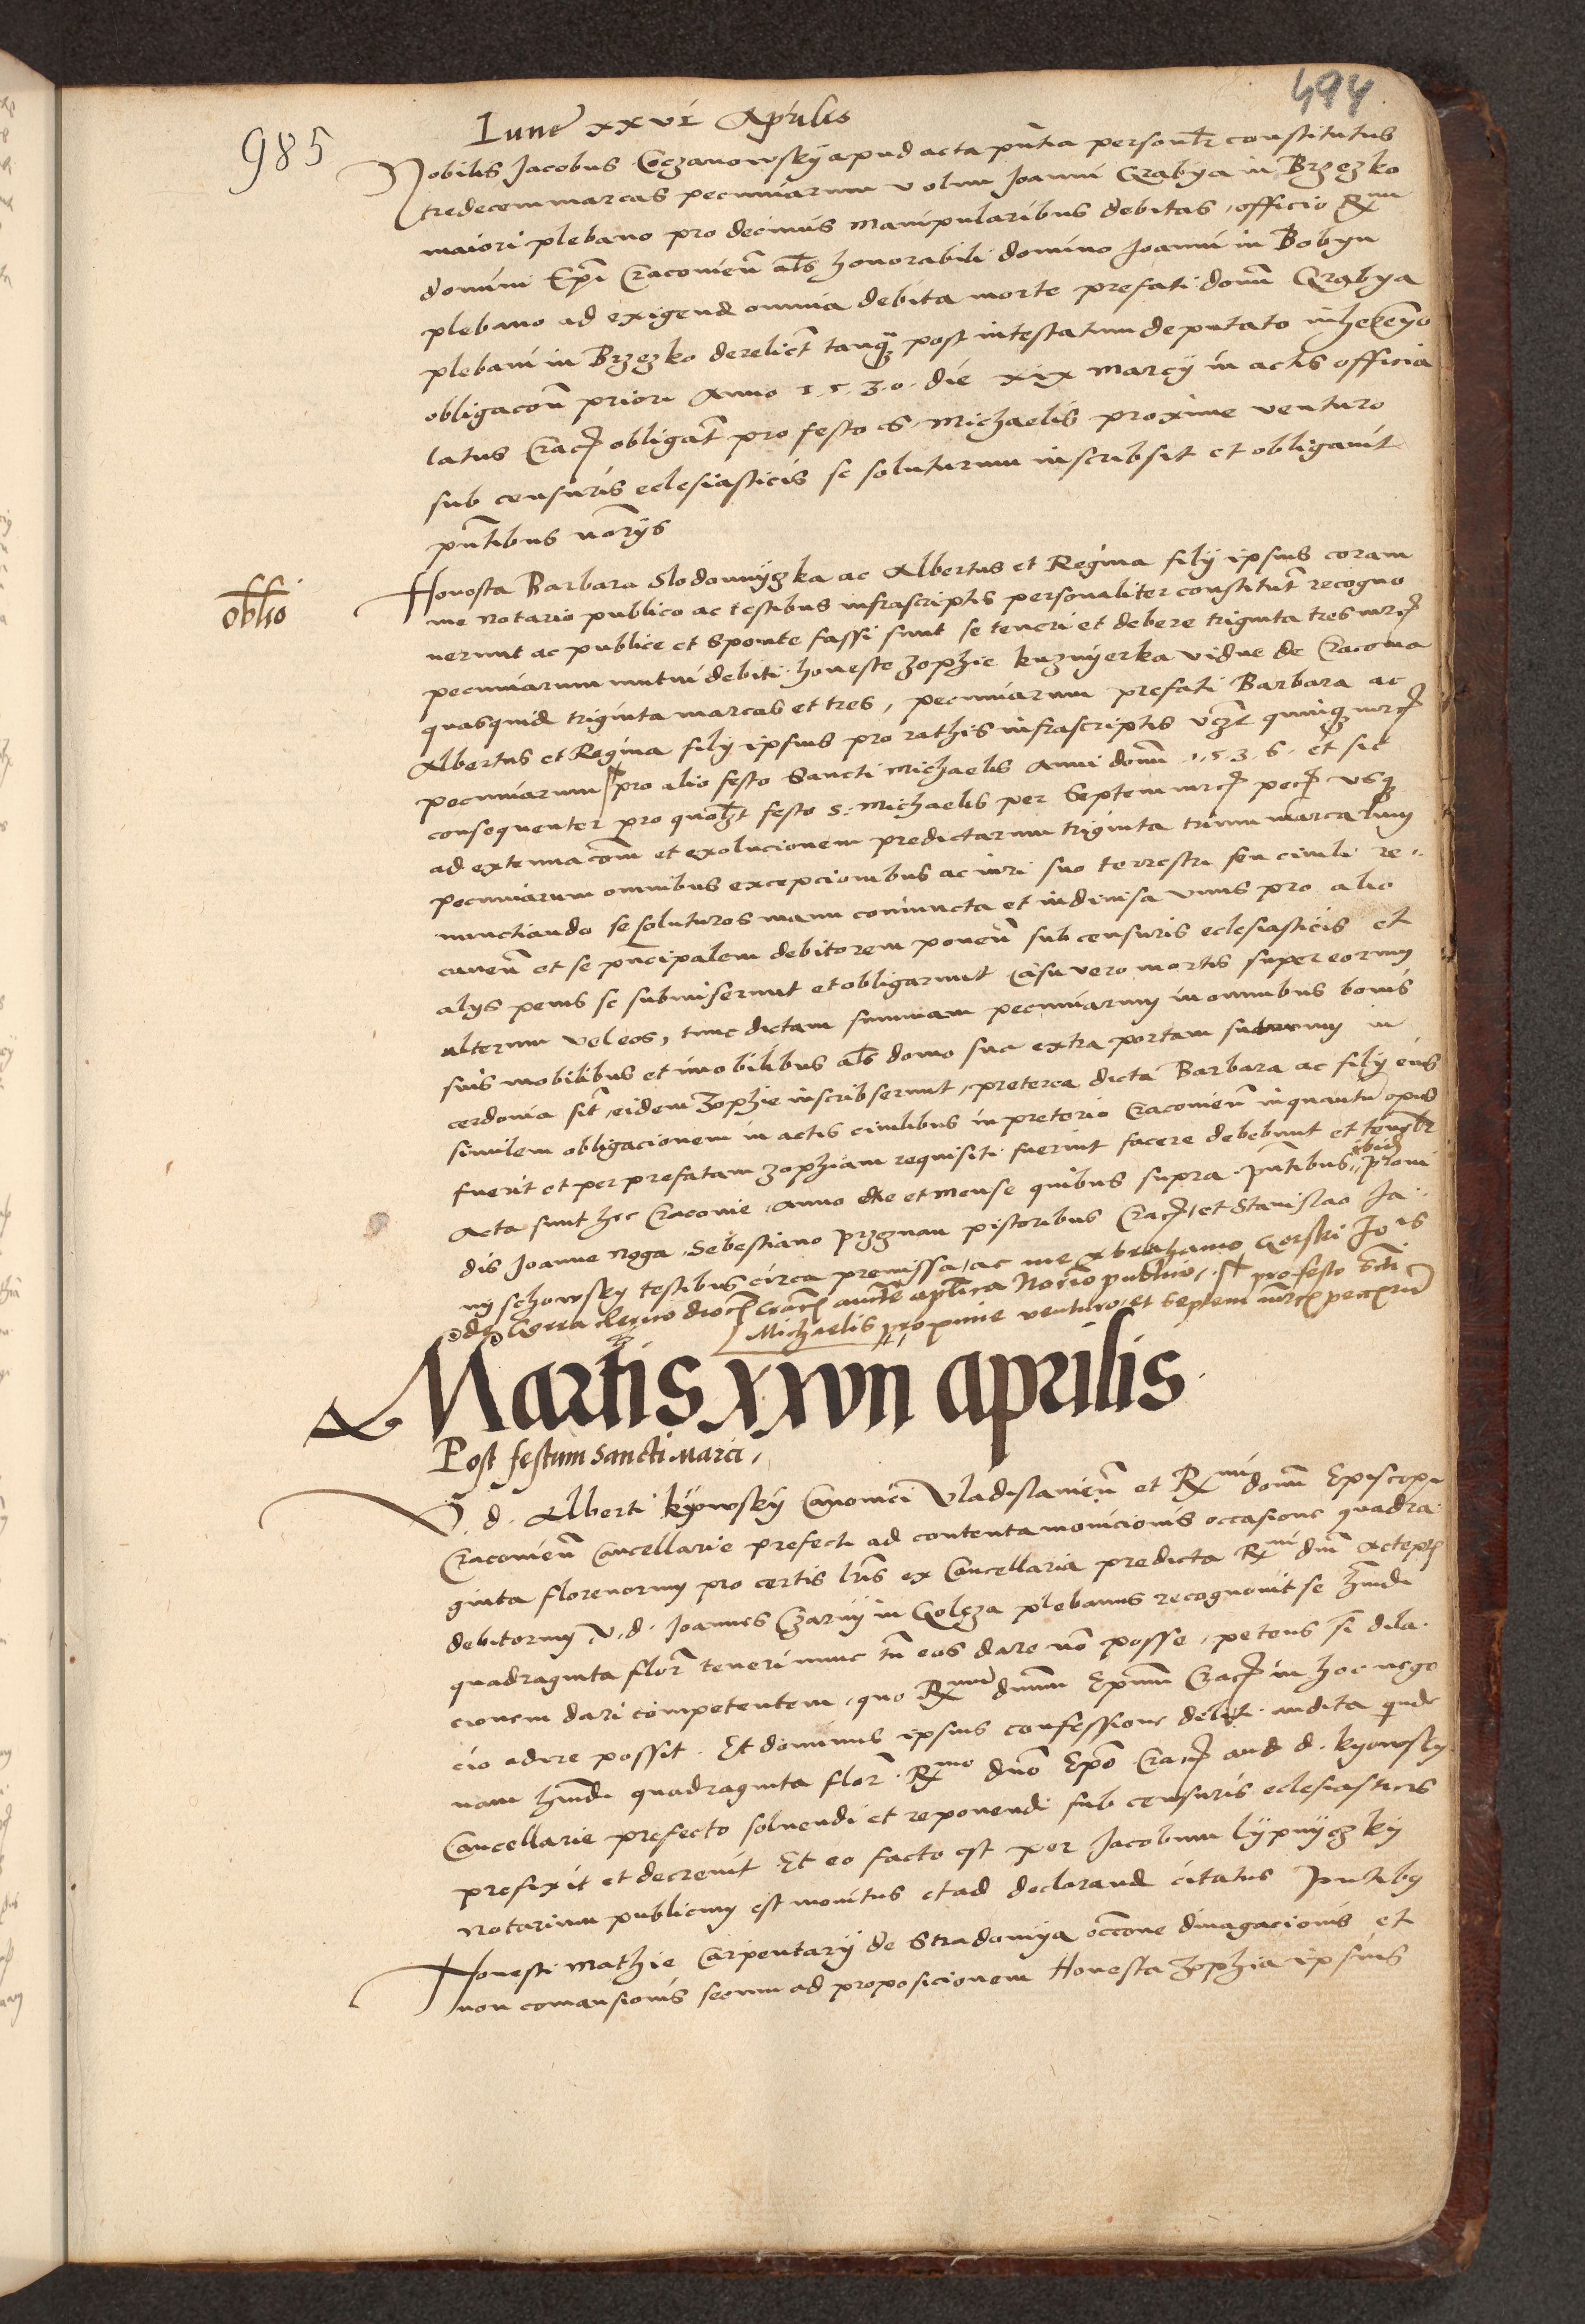 494
985
Lune xxvi Aprilis
Nobilis Jacobus Coczanowsky apud acta pntia personlr constitutus
tredecem marcas pecuniarum v olim Joanni Grabya in Brzezko
maiori plebano pro decimis manipularibus debitas, officio Rmi
domini Epi Cracovien als honorabili domino Joanni in Bobyn
plebano ad exigend omnia debita morte prefati domi Grabya
plebani in Brzezko derelict tanq post intestatum deputato inherendo
obligacon priori Anno 1.5.3.0. die xix marcy in actis officia
latus Crac obligat pro festo S. Michaelis proxime venturo
sub censuris eclesiasticis se soluturum inscribsit et obligavit
pntibus notrys
oblio
Honesta Barbara Slodownyczka ac Albertus et Regina fily ipsius coram
me notario publico ac testibus infrascriptis personaliter constitut recogno
verunt ac publice et sponte fassi sunt se teneri et debere triginta tres mrc
pecuniarum mutui debiti honeste Zophie kuznyerka vidue de Cracovia
quasquid triginta marcas et tres, pecuniarum prefati Barbara ac
Albertus et Regina fily ipsius pro rathis infrascriptis vczt quinq mrc
pecuniarum pro alio festo Sancti Michaelis Anni domi 1.5.3.6. et sic
consequenter pro quolzt festo S. Michaelis per Septem mrc pec usq
ad extenuacom et exolucionem predictarum triginta trium marcarum
pecuniarum omnibus excepcionibus ac iuri suo terrestri seu civili re
nunctiando se soluturos manu coniuncta et indivisa unus pro alio
caven et se pncipalem debitorem ponen sub censuris eclesiasticis et
alys penis se submiserunt et obligarunt Casu vero mortis super eorum
alterum vel eos, tunc dictam summam pecuniarum in omnibus bonis
suis mobilibus et imobilibus als domo sua extra portam sutorum in
cerdonia sit, eidem Zophie inscribserunt, preterea dicta Barbara ac fily eius
similem obligacionem in actis civilibus in pretorio Cracovien inquantu opus
fuerit et per prefatam Zophiam requisiti fuerint facere debebunt et tenebr
Acta sunt hec Cracovie, Anno die et mense quibus supra pntibus ibid provi
dis Joanne Noga, Sebestiano przegnan pistoribus Crac, et Stanislao Ja
nyschowsky testibus circa premissa, ac me Abrahamo Gorski Jois
de Gorra clerico dioc Crac aucte aplica Notrio publico, pro festo Scti
Michaelis proxime venturo et Septem mrc pecuniaru
Martis xxvii aprilis
Post festum Sancti Marci,
V. d. Alberti kyowsky Canonici Vladislavien et Rmi domi Episcopi
Cracovien Cancellarie prefecti ad contenta monicionis occasione quadra
ginta florenorum pro certis lris ex Cancellaria predicta Rmi dni acceptis
debitorum V. d. Joannes Czarny in Golcza plebanus recognovit se hmodi
quadraginta flor teneri nunc tn eos dare no posse, petens si dila
cionem dari competentem, quo Rmum dnum Epum Crac in hoc nego
cio adire possit. Et dominus ipsius confessione debit audita quinde
nam hmodi quadraginta flor Rmo dno Epo Crac aut d. kyowsky
Cancellarie prefecto solvendi et reponendi sub censuris eclesiasticis
prefixit et decrevit Et eo facto est per Jacobum Lypnyczky
notarium publicum est monitus et ad declarand citatus pntibus
Honesti Mathie Carpentarii de Stradomya occone divagacionis et
non comansionis secum ad proposicionem Honesta Zophia ipsius